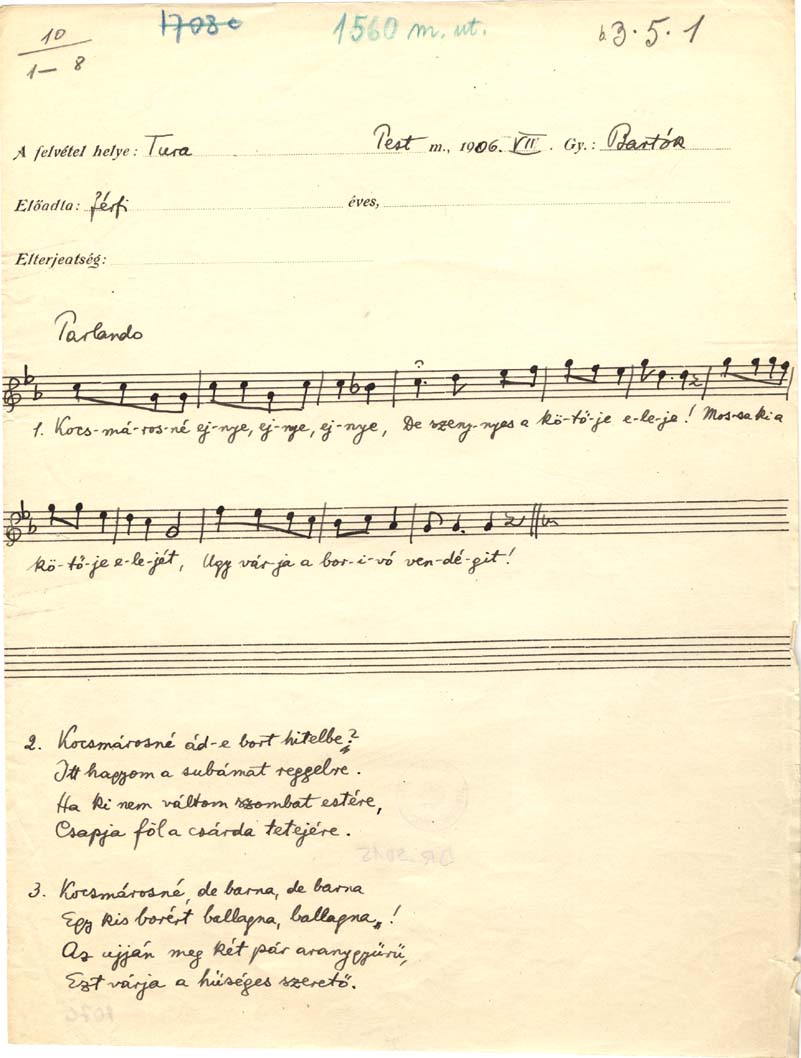 10
1–8
1708c
1560 m. ut.
b3.5.1
A felvétel helye: Tura Pest m., 1906. VII. Gy.: Bartók
Előadta: férfi éves,
Elterjeatség:
Parlando
1. Kocs-má-ros-né ej-nye, ej-nye, ej-nye, De szeny-nyes a kö-tő-je e-le-je! Mos-sa ki a
kö-tő-je e-le-jét, Ugy vár-ja a bor-i-vó ven-dé-git!
2. Kocsmárosné ád-e bort hitelbe?
Itt hagyom a subámat reggelre.
Ha ki nem váltom szombat estére,
Csapja föl a csárda tetejére.
3. Kocsmárosné, de barna, de barna
Egy kis borért ballagna, ballagna,!
Az ujján meg két pár aranygyürü,
Ezt várja a hüséges szerető.